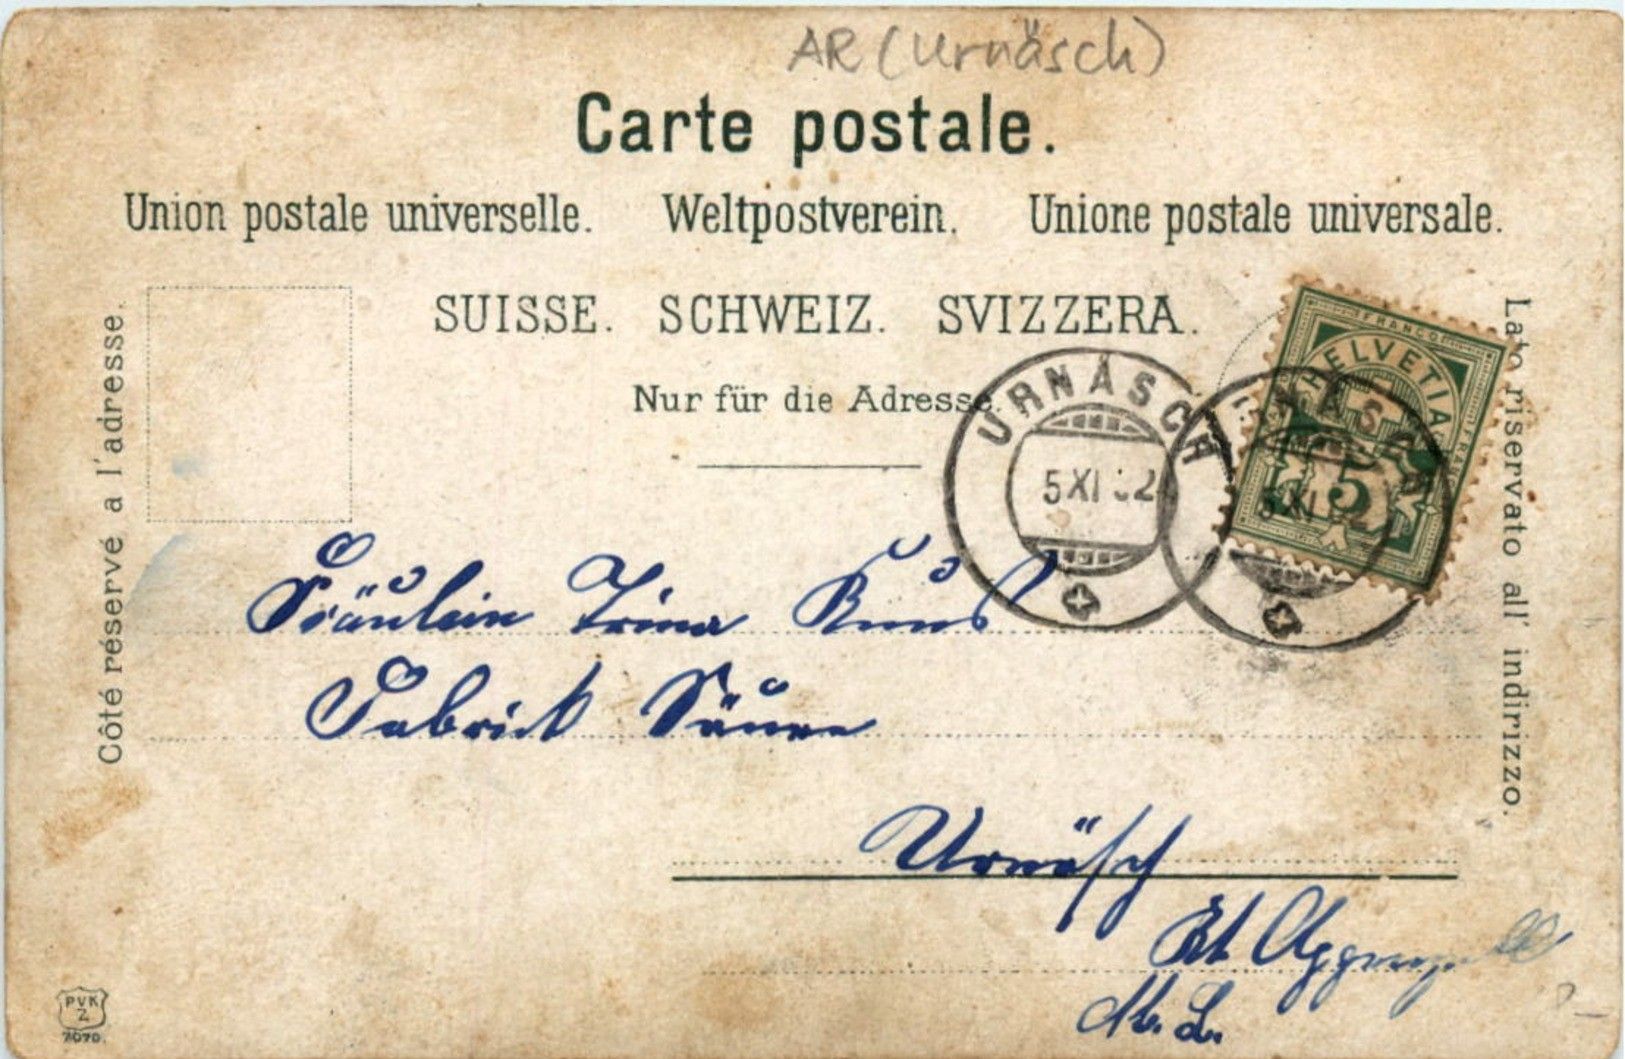 AR (Urnäsch)
Carte postale.
Union postale universelle. Weltpostverein. Unione postale universale.
SUISSE. SCHWEIZ. SVIZZERA.
Nur für die Adresse.
Côté réservé à l'adresse.
Lato riservato all' indirizzo.
FRANCO
HELVETIA
5
URNÄSCH
5 XI 02
Fräulein Trina
Fabrick
Urnäsch
Kt Appenzell
PVK
Z
7070.